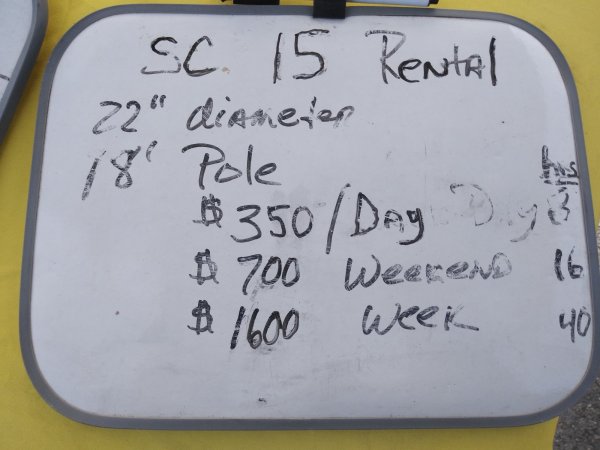 SC 15 Rental
22" diameter
18' Pole
hrs
$ 350 / Day Day 8
$ 700 Weekend 16
$ 1600 Week 40